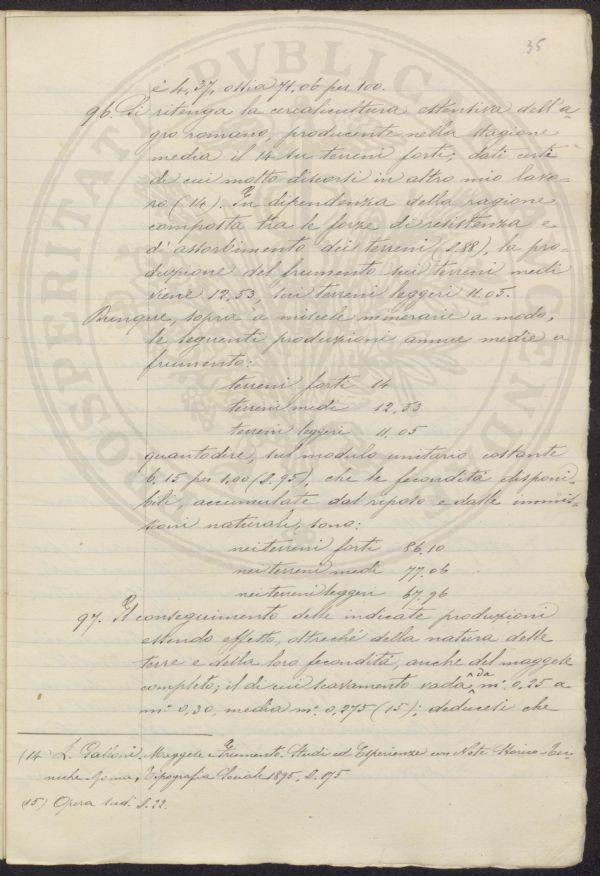 35
è 4,37, ossia 71.06 per 100.
96. Si ritenga la cerealicultura estensiva dell'a-
gro romano, producente nella stagione
media il 14 su terreni forti; dati certi
di cui molto discorsi in altro mio lavo-
ro (14). In dipendenza della ragione
composta tra le forze di resistenza e
d'assorbimento dei terreni (§.88), la pro-
duzione del frumento sui terreni medi
viene 12,53, sui terreni leggeri 11.05.
Dunque, sopra a miscele minerarie a modo,
le seguenti produzioni annue medie a
frumento:
terreni forti 14
terreni medi 12,53
terreni leggeri 11,05
quantodire, sul modulo unitario costante
6.15 per 1,00 (§.95), che le fecondità disponi-
bili, accumulate dal riposo e dalle immis-
sioni naturali, sono:
nei terreni forti 86.10
nei terreni medi 77.06
nei terreni leggeri 67.96
97. Il conseguimento delle indicate produzioni
essendo effetto, oltreché della natura delle
terre e della loro fecondità, anche del maggese
completo; il di cui scavamento vada da m.º 0,25 a
m.º 0,30, media m.º 0,275 (15); deducesi che
(14 L. Maggese Frumento. Studi ed Esperienze con Note Storico-Tec-
niche. Roma, Tipografia Sociale 1895,
(15) Opera sud. §.22.